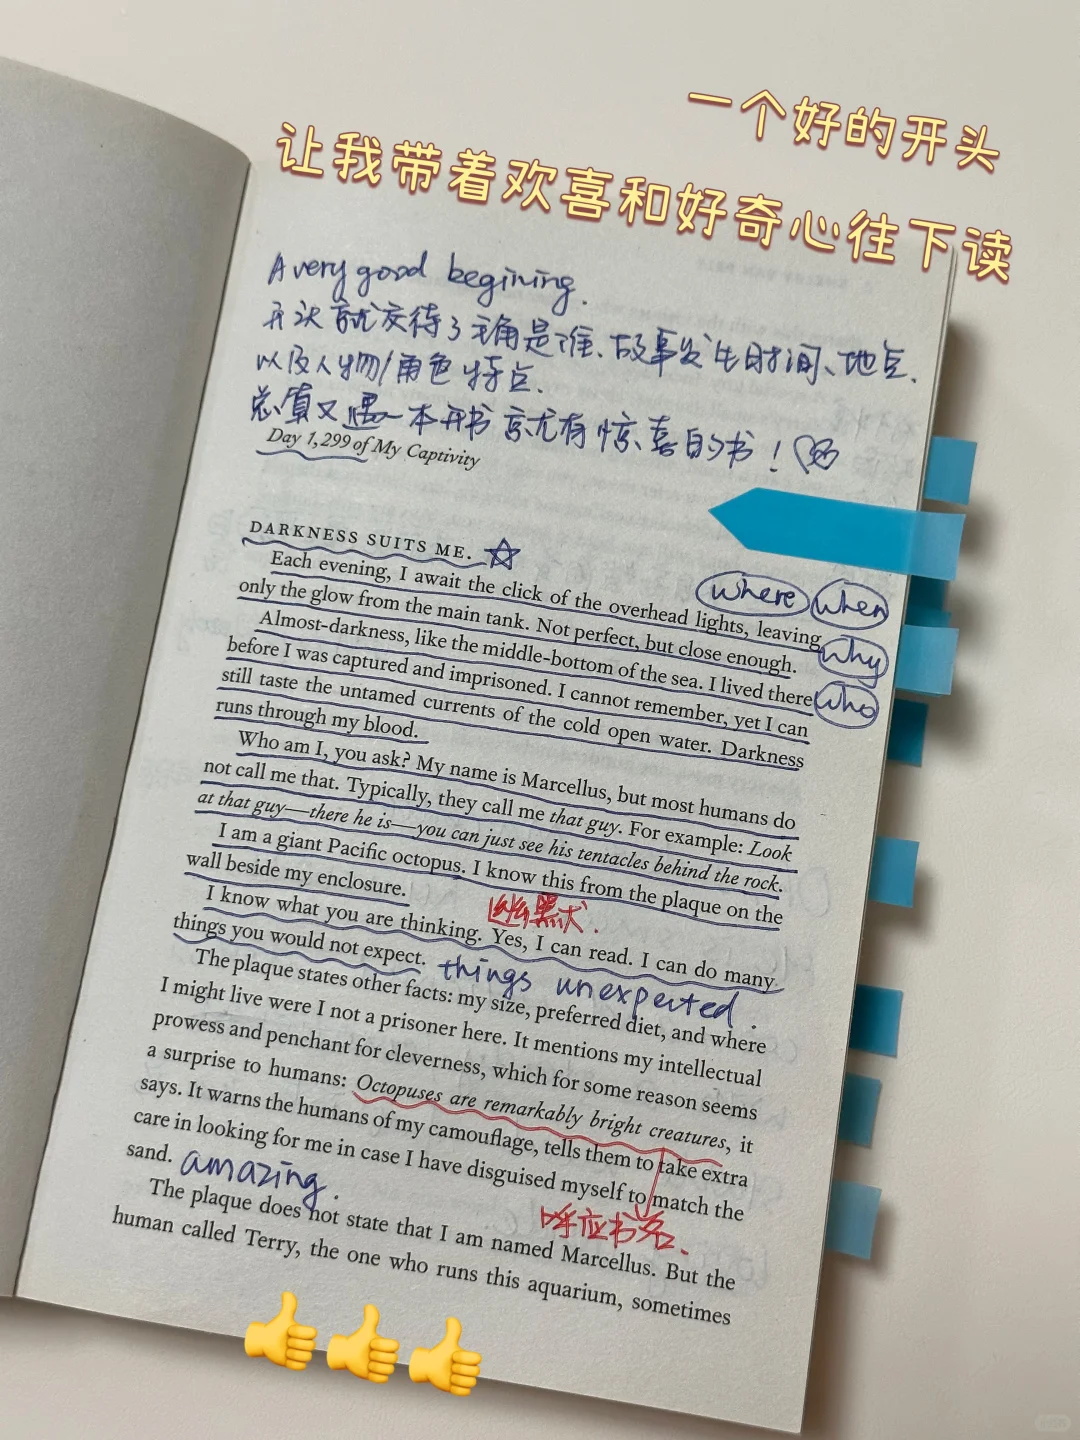 一个好的开头
让我带着欢喜和好奇心往下读
A very good begining.
开头就交待了主角是谁、故事发生时间、地点,
以及人物/角色特点.
总算又遇一本开书就有惊喜的书!
Day 1,299 of My Captivity
DARKNESS SUITS ME.
where when
Each evening, I await the click of the overhead lights, leaving
only the glow from the main tank. Not perfect, but close enough.
why
Almost-darkness, like the middle-bottom of the sea. I lived there
who
before I was captured and imprisoned. I cannot remember, yet I can
still taste the untamed currents of the cold open water. Darkness
runs through my blood.
Who am I, you ask? My name is Marcellus, but most humans do
not call me that. Typically, they call me that guy. For example: Look
at that guy—there he is—you can just see his tentacles behind the rock.
I am a giant Pacific octopus. I know this from the plaque on the
wall beside my enclosure.
幽默.
I know what you are thinking. Yes, I can read. I can do many
things you would not expect.
things unexpected.
The plaque states other facts: my size, preferred diet, and where
I might live were I not a prisoner here. It mentions my intellectual
prowess and penchant for cleverness, which for some reason seems
a surprise to humans: Octopuses are remarkably bright creatures, it
says. It warns the humans of my camouflage, tells them to take extra
care in looking for me in case I have disguised myself to match the
sand.
amazing.
呼应书名.
The plaque does not state that I am named Marcellus. But the
human called Terry, the one who runs this aquarium, sometimes